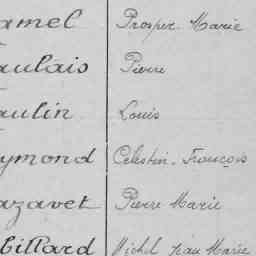 amel Prosper Marie
aulais Pierre
aulin Louis
ymond Celestin François
azavet Pierre Marie
billard Michel Jean Marie